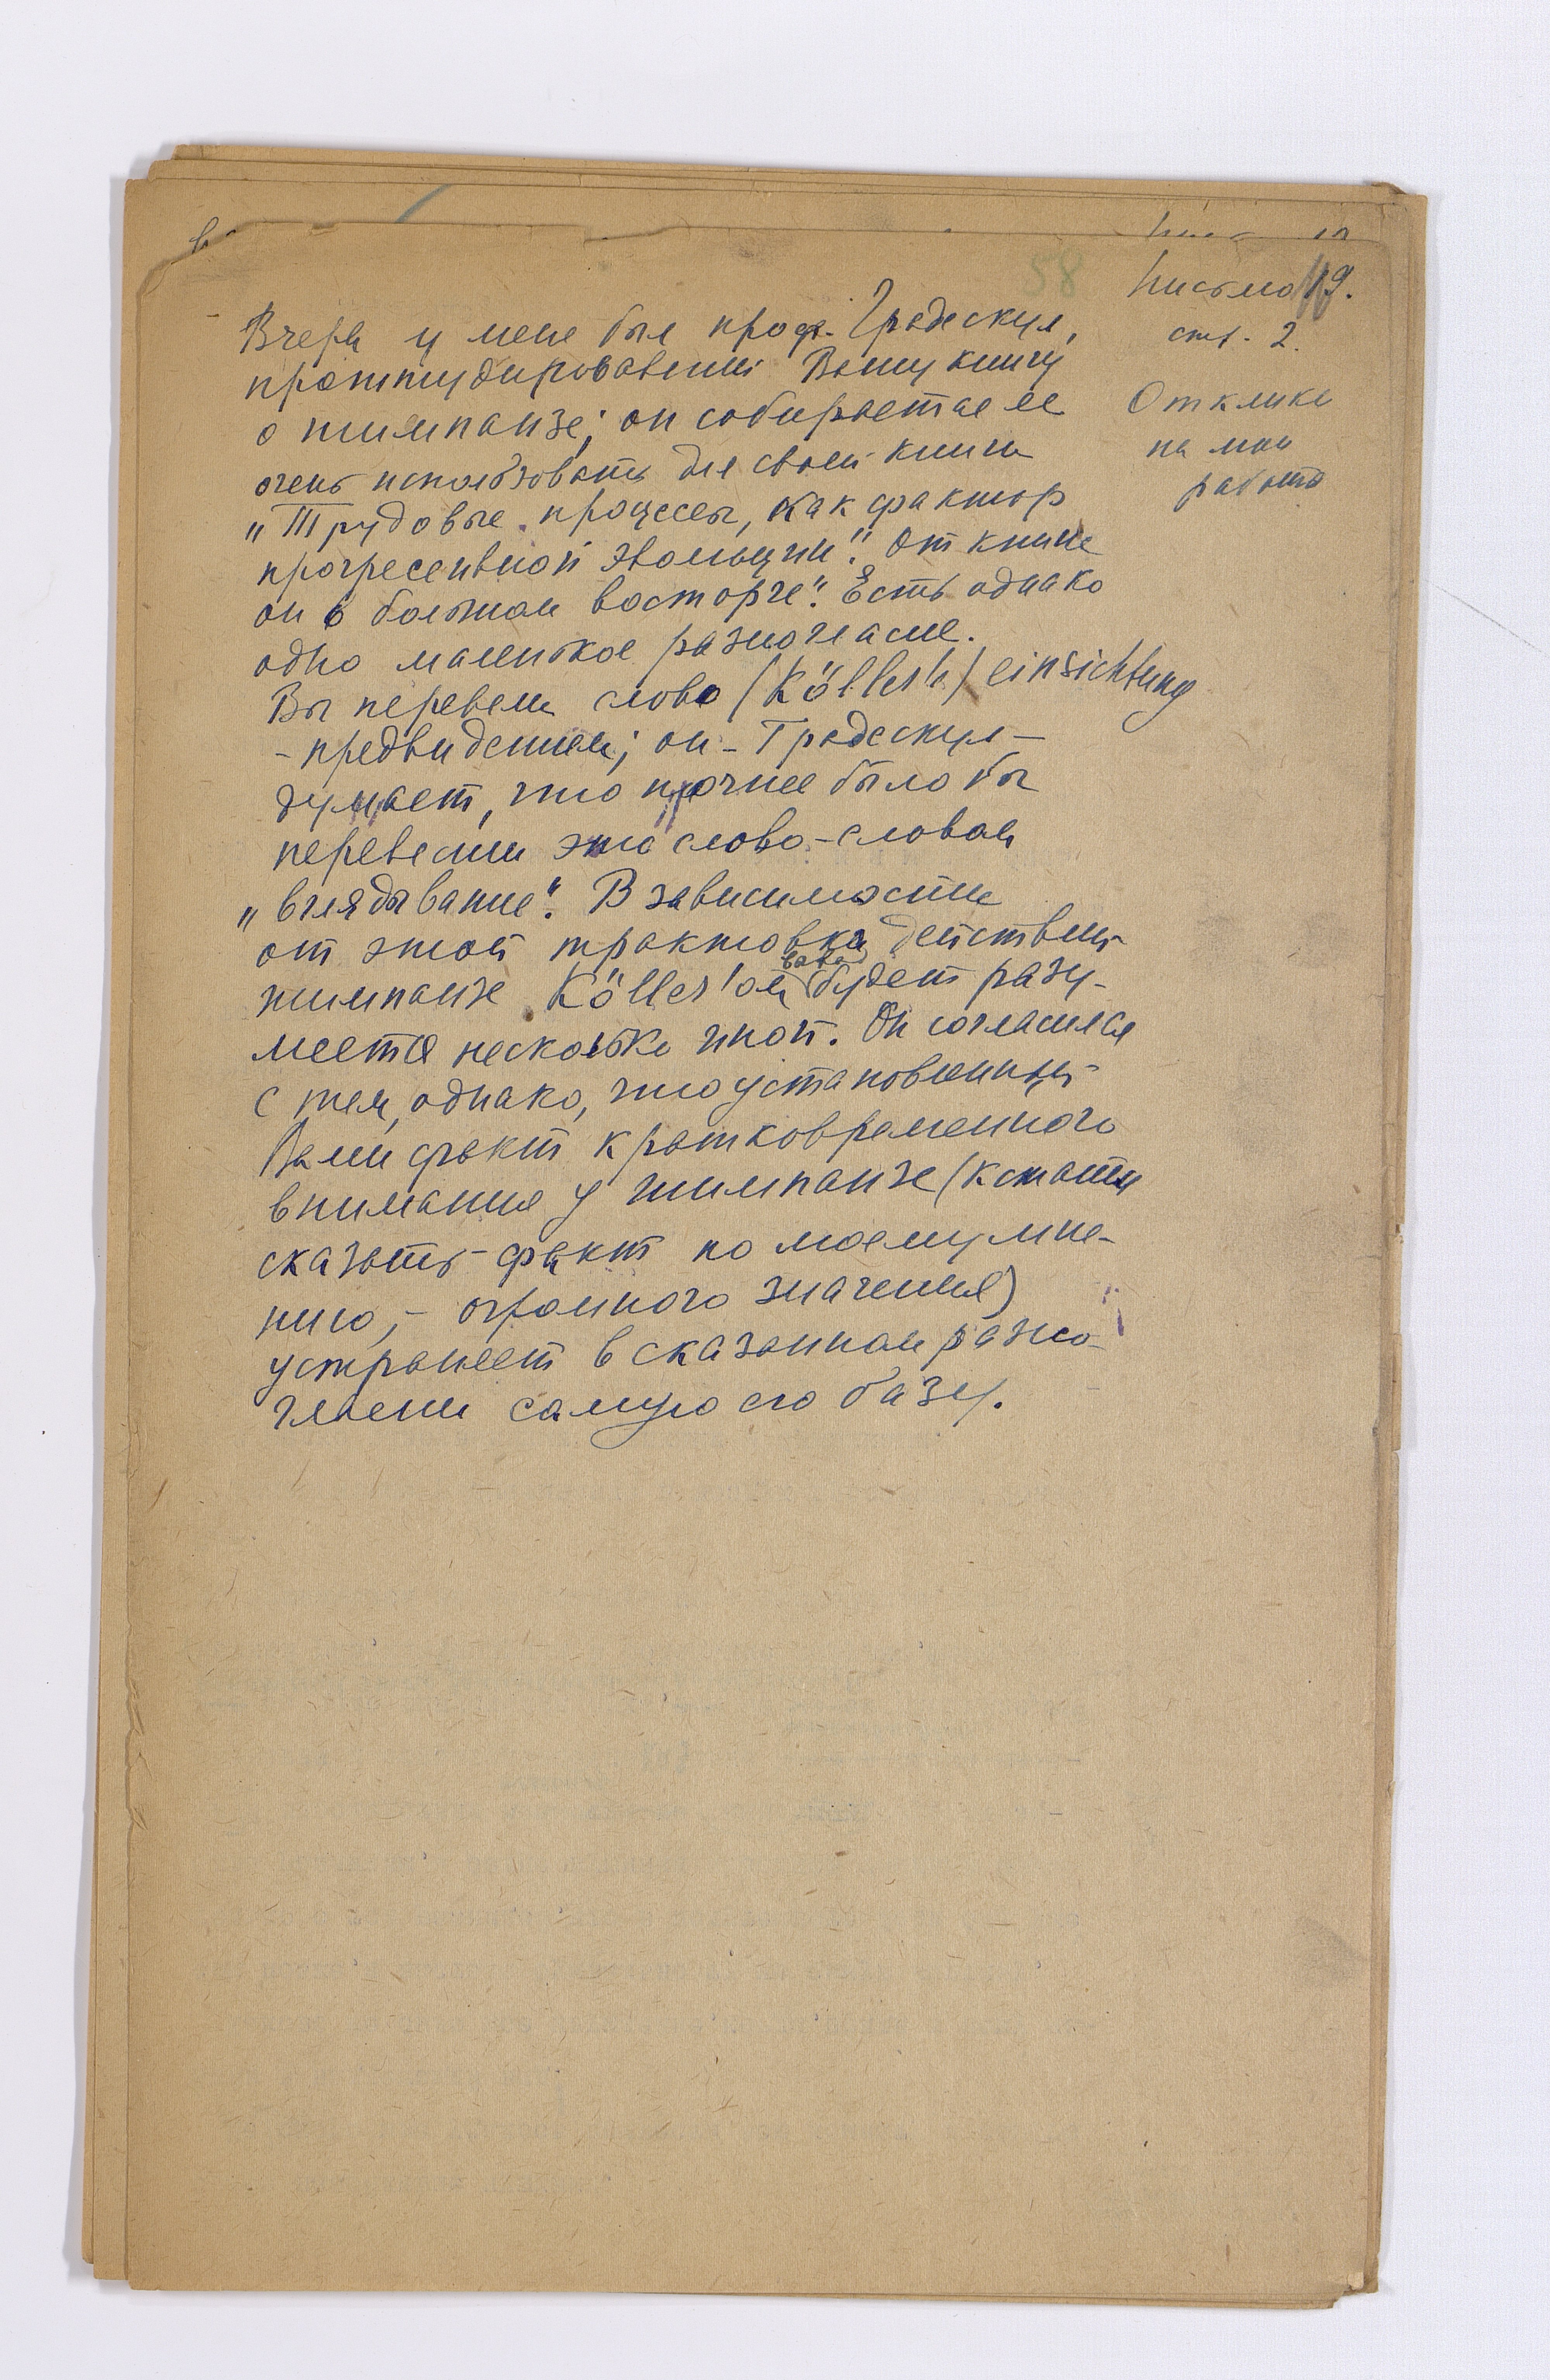 58
Письмо 19.
стр. 2.
Отклики
на мои
работы
Вчера у меня был проф. Градескул,
проштудировавший Вашу книгу
о шимпанзе; он собирается ее
очень использовать для своей книги
„Трудовые процессы, как фактор
прогрессивной эволюции". От книги
он в большом восторге". Есть однако
одно маленькое разногласие.
Вы перевели слово (Köller'a) einsichtung
- предвидением; он - Градескул -
думает, что точнее было бы
перевести это слово - словом
„вглядывание". В зависимости
от этой трактовка действий
шимпанзе Köller'ом будет разу-
меется несколько иной. Он согласился
с тем, однако, что установленный
Вами факт кратковременного
внимания у шимпанзе (кстати
сказать - факт по моему мне-
нию, - огромного значения)
устраняет в сказанном разно-
гласии самую его базу.